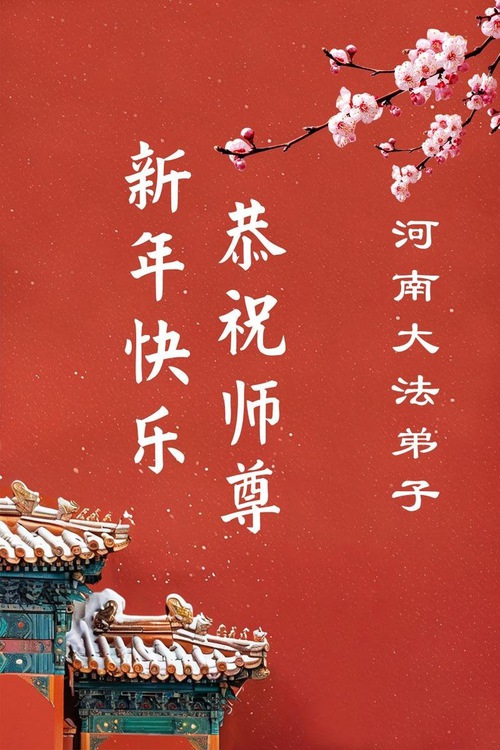 河南大法弟子
恭祝师尊
新年快乐